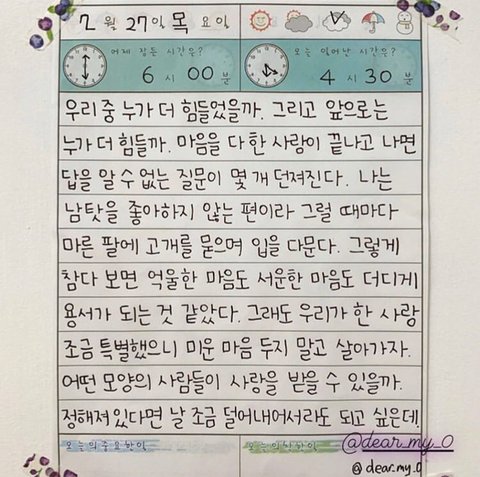 7월 27일 목요일
어제 잠든 시간은?
6시 00분
오늘 일어난 시간은?
4시 30분
우리 중 누가 더 힘들었을까. 그리고 앞으로는
누가 더 힘들까. 마음을 다 한 사랑이 끝나고 나면
답을 알 수 없는 질문이 몇 개 던져진다. 나는
남탓을 좋아하지 않는 편이라 그럴 때마다
마른 팔에 고개를 묻으며 입을 다문다. 그렇게
참다 보면 억울한 마음도 서운한 마음도 더디게
용서가 되는 것 같았다. 그래도 우리가 한 사랑
조금 특별했으니 미운 마음 두지 말고 살아가자.
어떤 모양의 사람들이 사랑을 받을 수 있을까.
정해져 있다면 날 조금 덜어내어서라도 되고 싶은데.
오늘의 중요한일
오늘의 착한일
@dear_my_0
@dear_my_0